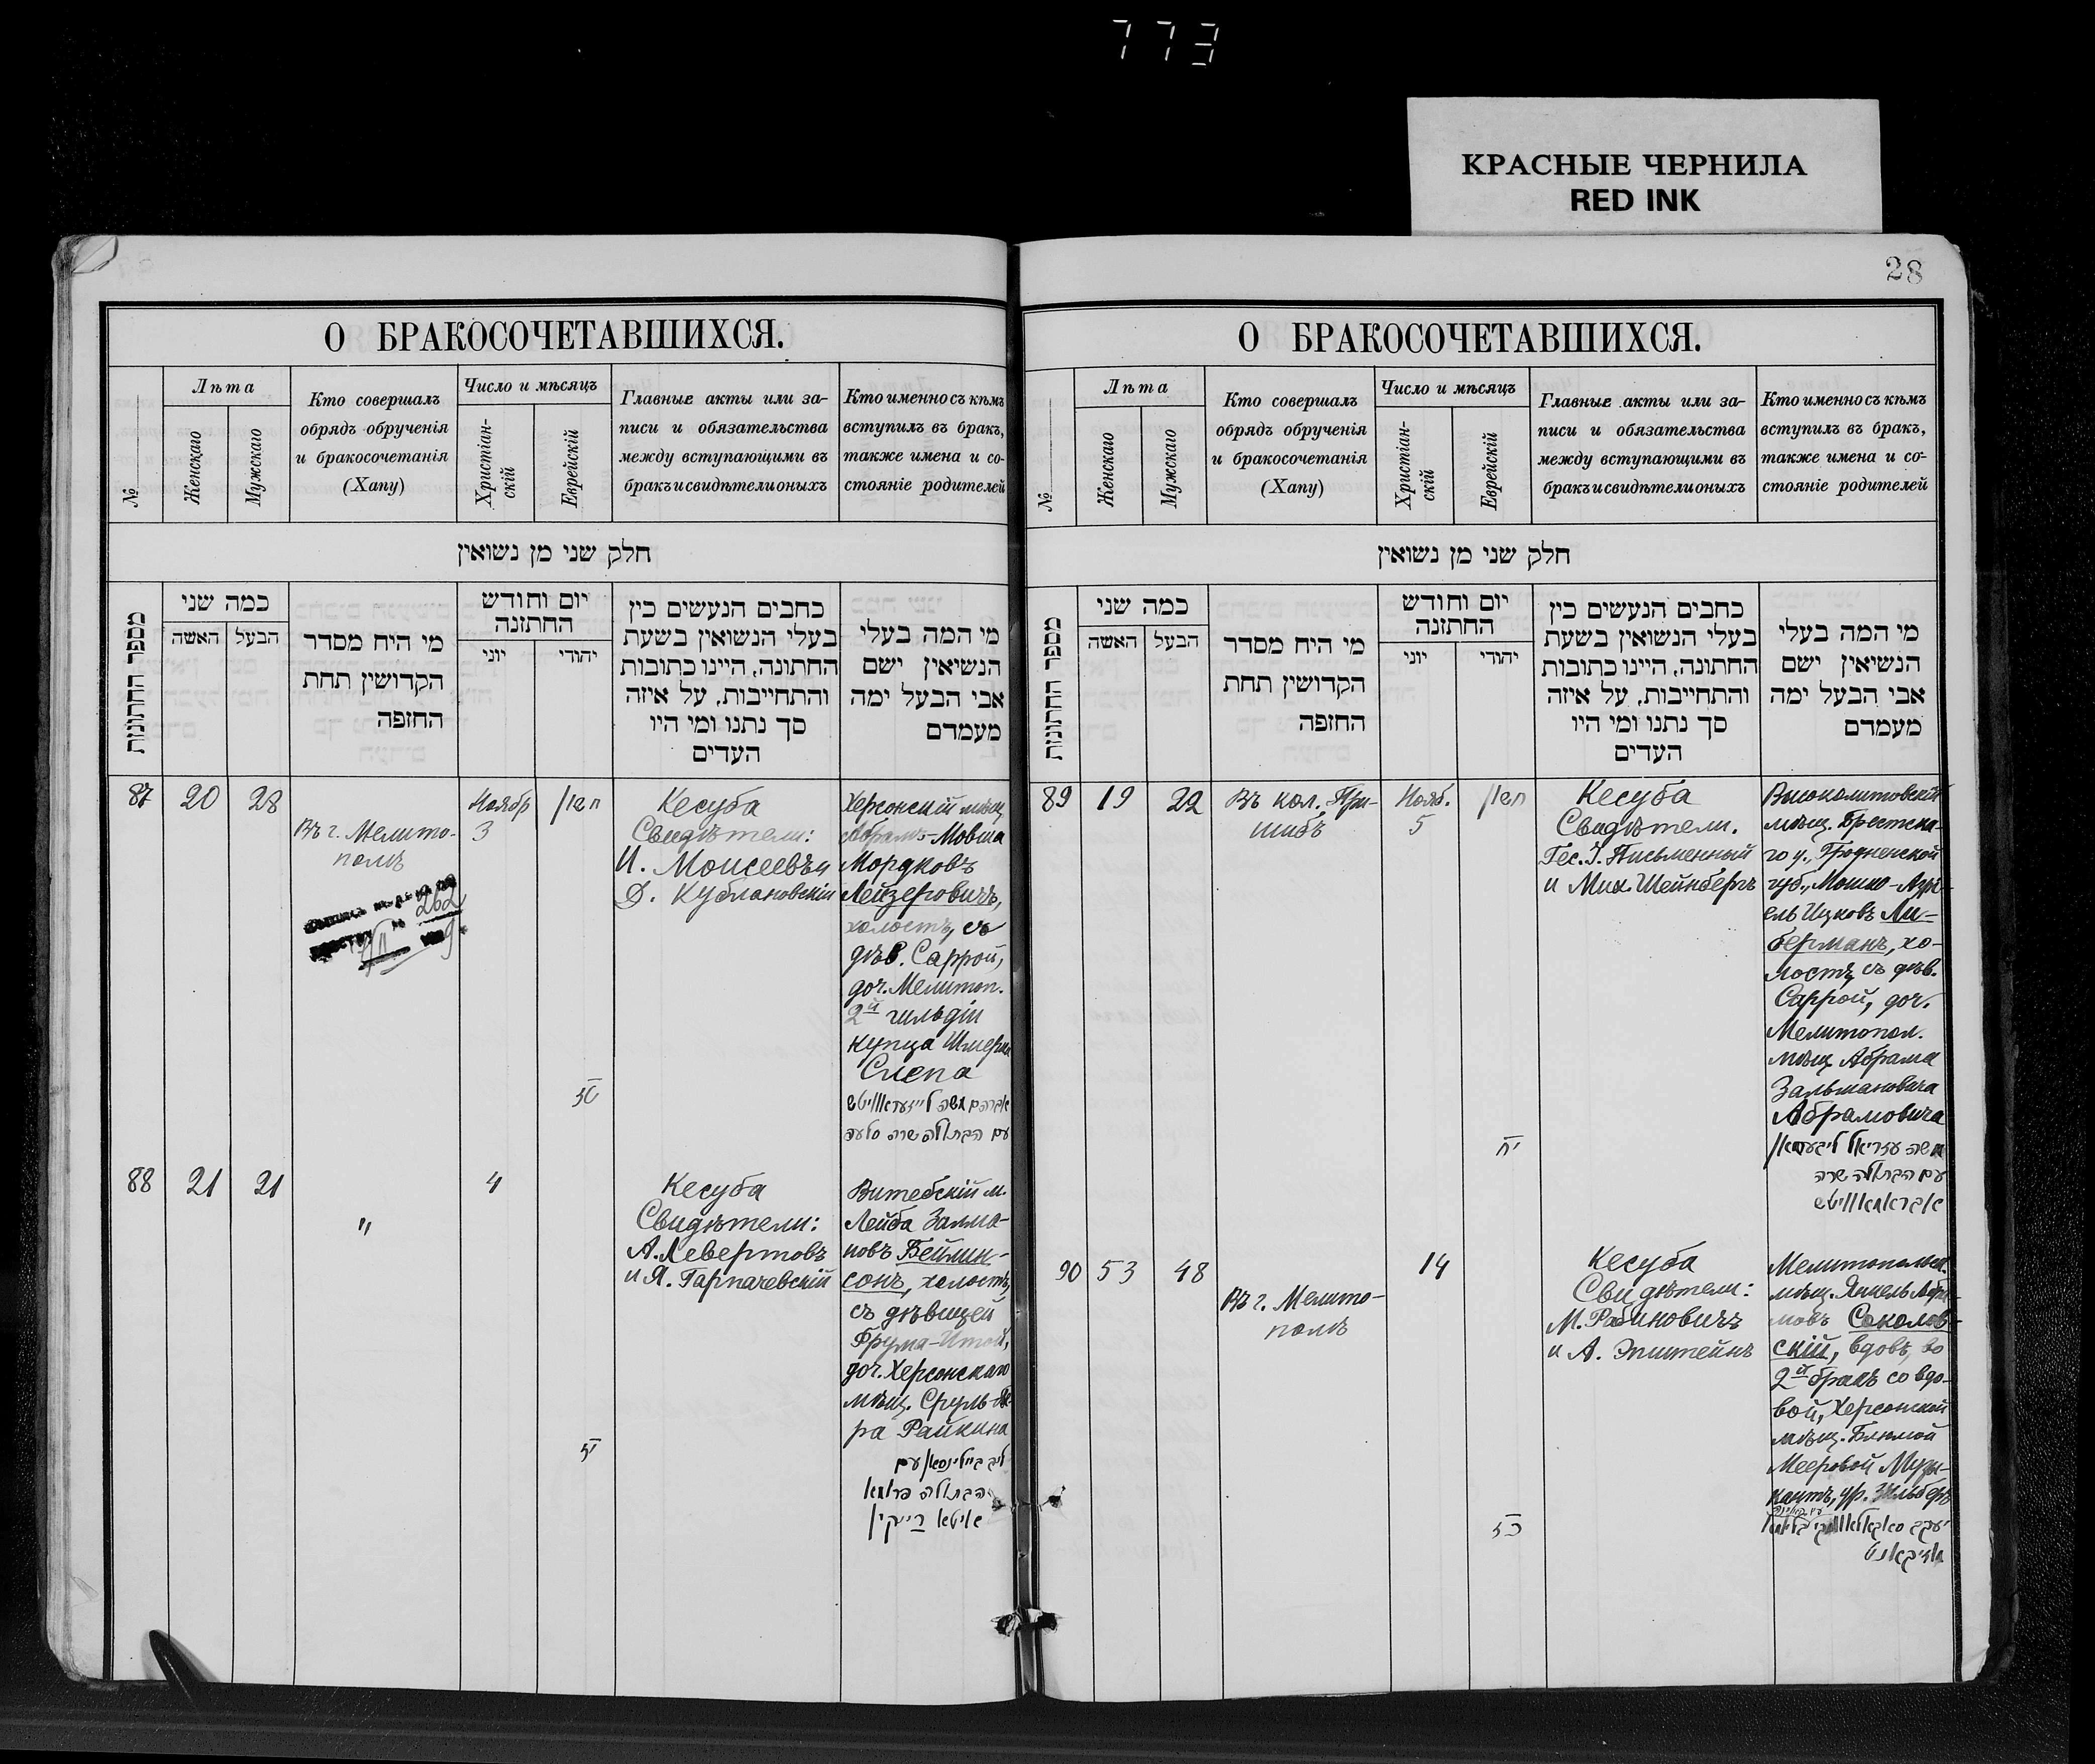 773
КРАСНЫЕ ЧЕРНИЛА
RED INK
О БРАКОСОЧЕТАВШИХСЯ.
№
Лѣта
Женскаго
Мужскаго
Кто совершалъ
обрядъ обрученія
и бракосочетанія
(Хапу)
Число и мѣсяцъ
Христіан-
скій
Еврейскій
Главные акты или за-
писи и обязательства
между вступающими въ
бракъ и свидѣтели оныхъ
Кто именно съ кѣмъ
вступилъ въ бракъ,
также имена и со-
стояніе родителей
חלק שני מן נשואין
מספר החתונות
כמה שני
האשה
הבעל
מי היח מסדר
הקדושין תחת
החזפה
יום וחודש
החתזנה
יוני
יהודי
כחבים הנעשים כין
בעלי הנשואין בשעת
החתונה, היינו כתובות
והתחייבות, על איזה
סך נתנו ומי היו
העדים
מי המה בעלי
הנשיאין ישם
אבי הבעל ימה
מעמדם
87
20
28
Въ г. Мелито-
полѣ
262
Ноябр
3
חשון
Кесуба
Свидѣтели:
И. Моисеевъ и
Д. Кублановскій
Херсонскій мѣщ.
Абрамъ-Мовша
Мордковъ
Лейзеровичъ,
холостъ, съ
дѣв. Саррой,
доч. Мелитоп.
2й гильдіи
купца Шмерка
Слепа
אברהם משה לייזעראוויטש
עם הבתולה שרה סלעפ
88
21
21
"
4
Кесуба
Свидѣтели:
А. Левертовъ
и Я. Гарпачевскій
Витебскій м.
Лейба Залма-
новъ Бейлин-
сонъ, холостъ,
съ дѣвицей
Фрума-Итой,
доч. Херсонскаго
мѣщ. Сруль-
ра Райкина
ליב ביילינסאן עם
הבתולה פרומא
איטא רייקין
28
О БРАКОСОЧЕТАВШИХСЯ.
№
Лѣта
Женскаго
Мужскаго
Кто совершалъ
обрядъ обрученія
и бракосочетанія
(Хапу)
Число и мѣсяцъ
Христіан-
скій
Еврейскій
Главные акты или за-
писи и обязательства
между вступающими въ
бракъ и свидѣтели оныхъ
Кто именно съ кѣмъ
вступилъ въ бракъ,
также имена и со-
стояніе родителей
חלק שני מן נשואין
מספר החתונות
כמה שני
האשה
הבעל
מי היח מסדר
הקדושין תחת
החזפה
יום וחודש
החתזנה
יוני
יהודי
כחבים הנעשים כין
בעלי הנשואין בשעת
החתונה, היינו כתובות
והתחייבות, על איזה
סך נתנו ומי היו
העדים
מי המה בעלי
הנשיאין ישם
אבי הבעל ימה
מעמדם
89
19
22
Въ кол. При-
шибъ
Нояб.
5
חשון
Кесуба
Свидѣтели.
Гес. I. Письменный
и Мих. Шейнбергъ
Высоколитовскій
мѣщ. Брестска-
го у., Гродненской
губ., Мошко-Азрі-
ель Ицковъ Ли-
берманъ, хо-
лостъ, съ дѣв.
Саррой, доч.
Мелитопол.
мѣщ. Абрама
Зальмановича
Абрамовича
יח
משה עזריאל ליבערמאן
עם הבתולה שרה
אבראמאוויטש
90
53
48
Въ г. Мелито-
полѣ
14
Кесуба
Свидѣтели:
М. Рабиновичъ
и А. Эпштейнъ
Мелитопольск.
мѣщ. Янкель Абра-
мовъ Соколов-
скій, вдовъ, во
2й бракъ со вдо-
вой, Херсонской
мѣщ. Блюмой
Мееровой Музы-
кантъ, ур. Зильберъ
כז